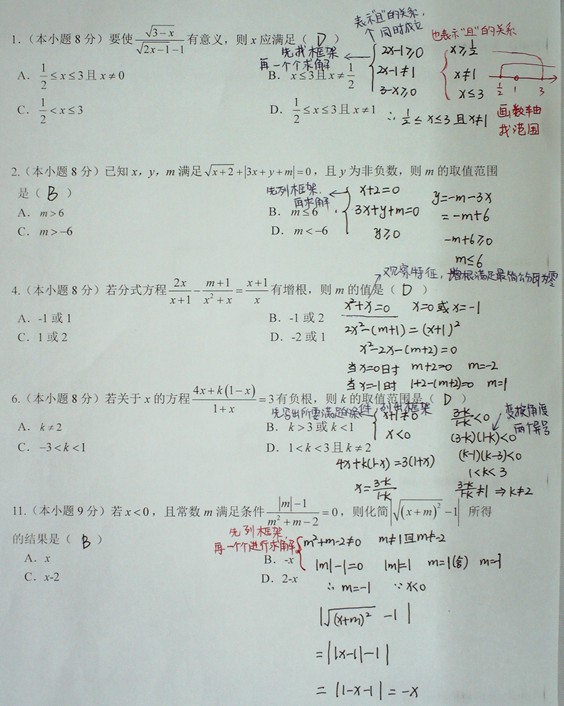 1.（本小题 8 分）要使 \frac{\sqrt{3-x}}{\sqrt{2x-1}-1} 有意义，则 x 应满足（ D ）
表示"且"的关系，
同时成立
也表示"且"的关系
先找框架
再一个个求解
2x-1≥0
2x-1≠1
3-x≥0
∴ \frac{1}{2}≤x≤3 且 x≠1
x≥\frac{1}{2}
x≠1
x≤3
\frac{1}{2} 1 3
画数轴
找范围
A. \frac{1}{2}≤x≤3 且 x≠0
B. x≤3 且 x≠\frac{1}{2}
C. \frac{1}{2}<x≤3
D. \frac{1}{2}≤x≤3 且 x≠1
2.（本小题 8 分）已知 x，y，m 满足 \sqrt{x+2}+|3x+y+m|=0，且 y 为非负数，则 m 的取值范围
是（ B ）
先列框架，
再求解
x+2=0
3x+y+m=0
y≥0
y=-m-3x
=-m+6
-m+6≥0
m≤6
A. m>6
B. m≤6
C. m>-6
D. m<-6
观察特征，增根满足最简公分母为零
4.（本小题 8 分）若分式方程 \frac{2x}{x+1}-\frac{m+1}{x²+x}=\frac{x+1}{x} 有增根，则 m 的值是（ D ）
A. -1 或 1
B. -1 或 2
C. 1 或 2
D. -2 或 1
x²+x=0 x=0 或 x=-1
2x²-(m+1)=(x+1)²
x²-2x-(m+2)=0
当x=0时 m+2=0 m=-2
当x=-1时 1+2-(m+2)=0 m=1
6.（本小题 8 分）若关于 x 的方程 \frac{4x+k(1-x)}{1+x}=3 有负根，则 k 的取值范围是（ D ）
列出框架
x+1≠0
x<0
\frac{3-k}{1-k}<0
变换角度
两个异号
(3-k)(1-k)<0
(k-1)(k-3)<0
1<k<3
A. k≠2
B. k>3 或 k<1
C. -3<k<1
D. 1<k<3 且 k≠2
4x+k(1-x)=3(1+x)
x=\frac{3-k}{1-k}
\frac{3-k}{1-k}≠-1 ⇒ k≠2
11.（本小题 9 分）若 x<0，且常数 m 满足条件 \frac{|m|-1}{m²+m-2}=0，则化简 |\sqrt{(x+m)²}-1| 所得
的结果是（ B ）
先列框架，
再一个个进行求解
m²+m-2≠0 m≠1且m≠-2
|m|-1=0 |m|=1 m=1(舍) m=-1
∴ m=-1 ∵ x<0
A. x
B. -x
C. x-2
D. 2-x
|\sqrt{(x+m)²} -1|
=||x-1|-1|
=|1-x-1|=-x